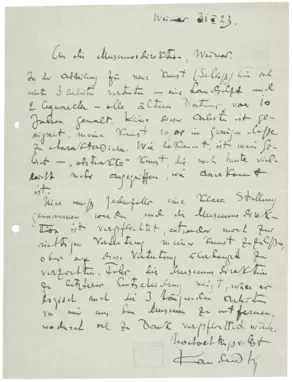 Weimar 31 V 23.
An die Museumsdirektion, Weimar.
In der Abteilung für neue Kunst (Schloß) bin ich
mit 3 Arbeiten vertreten – eine Landschaft und
2 Aquarelle – alle ältern Datums, vor 10
Jahren gemalt. Keine dieser Arbeiten ist ge-
eignet, meine Kunst
zu charakterisieren. Wie bekannt, ist mein Ge-
biet – „abstrakte" Kunst, die noch heute viel-
leicht mehr angegriffen, wie anerkannt
ist.
Hier muß jedenfalls eine klare Stellung
genommen werden und die Museumsdirek-
tion ist verpflichtet, entweder noch zur
richtigen Vertretung meiner Kunst
oder auf diese Vertretung überhaupt zu
verzichten. Falls die Museumsdirektion
zu letzterer Entscheidung neigt, wäre es
logisch auch die 3 Arbeiten
von mir aus dem Museum zu entfernen,
wodurch zu Dank verpflichtet wäre.
Hochachtungsvollst
Kandinsky